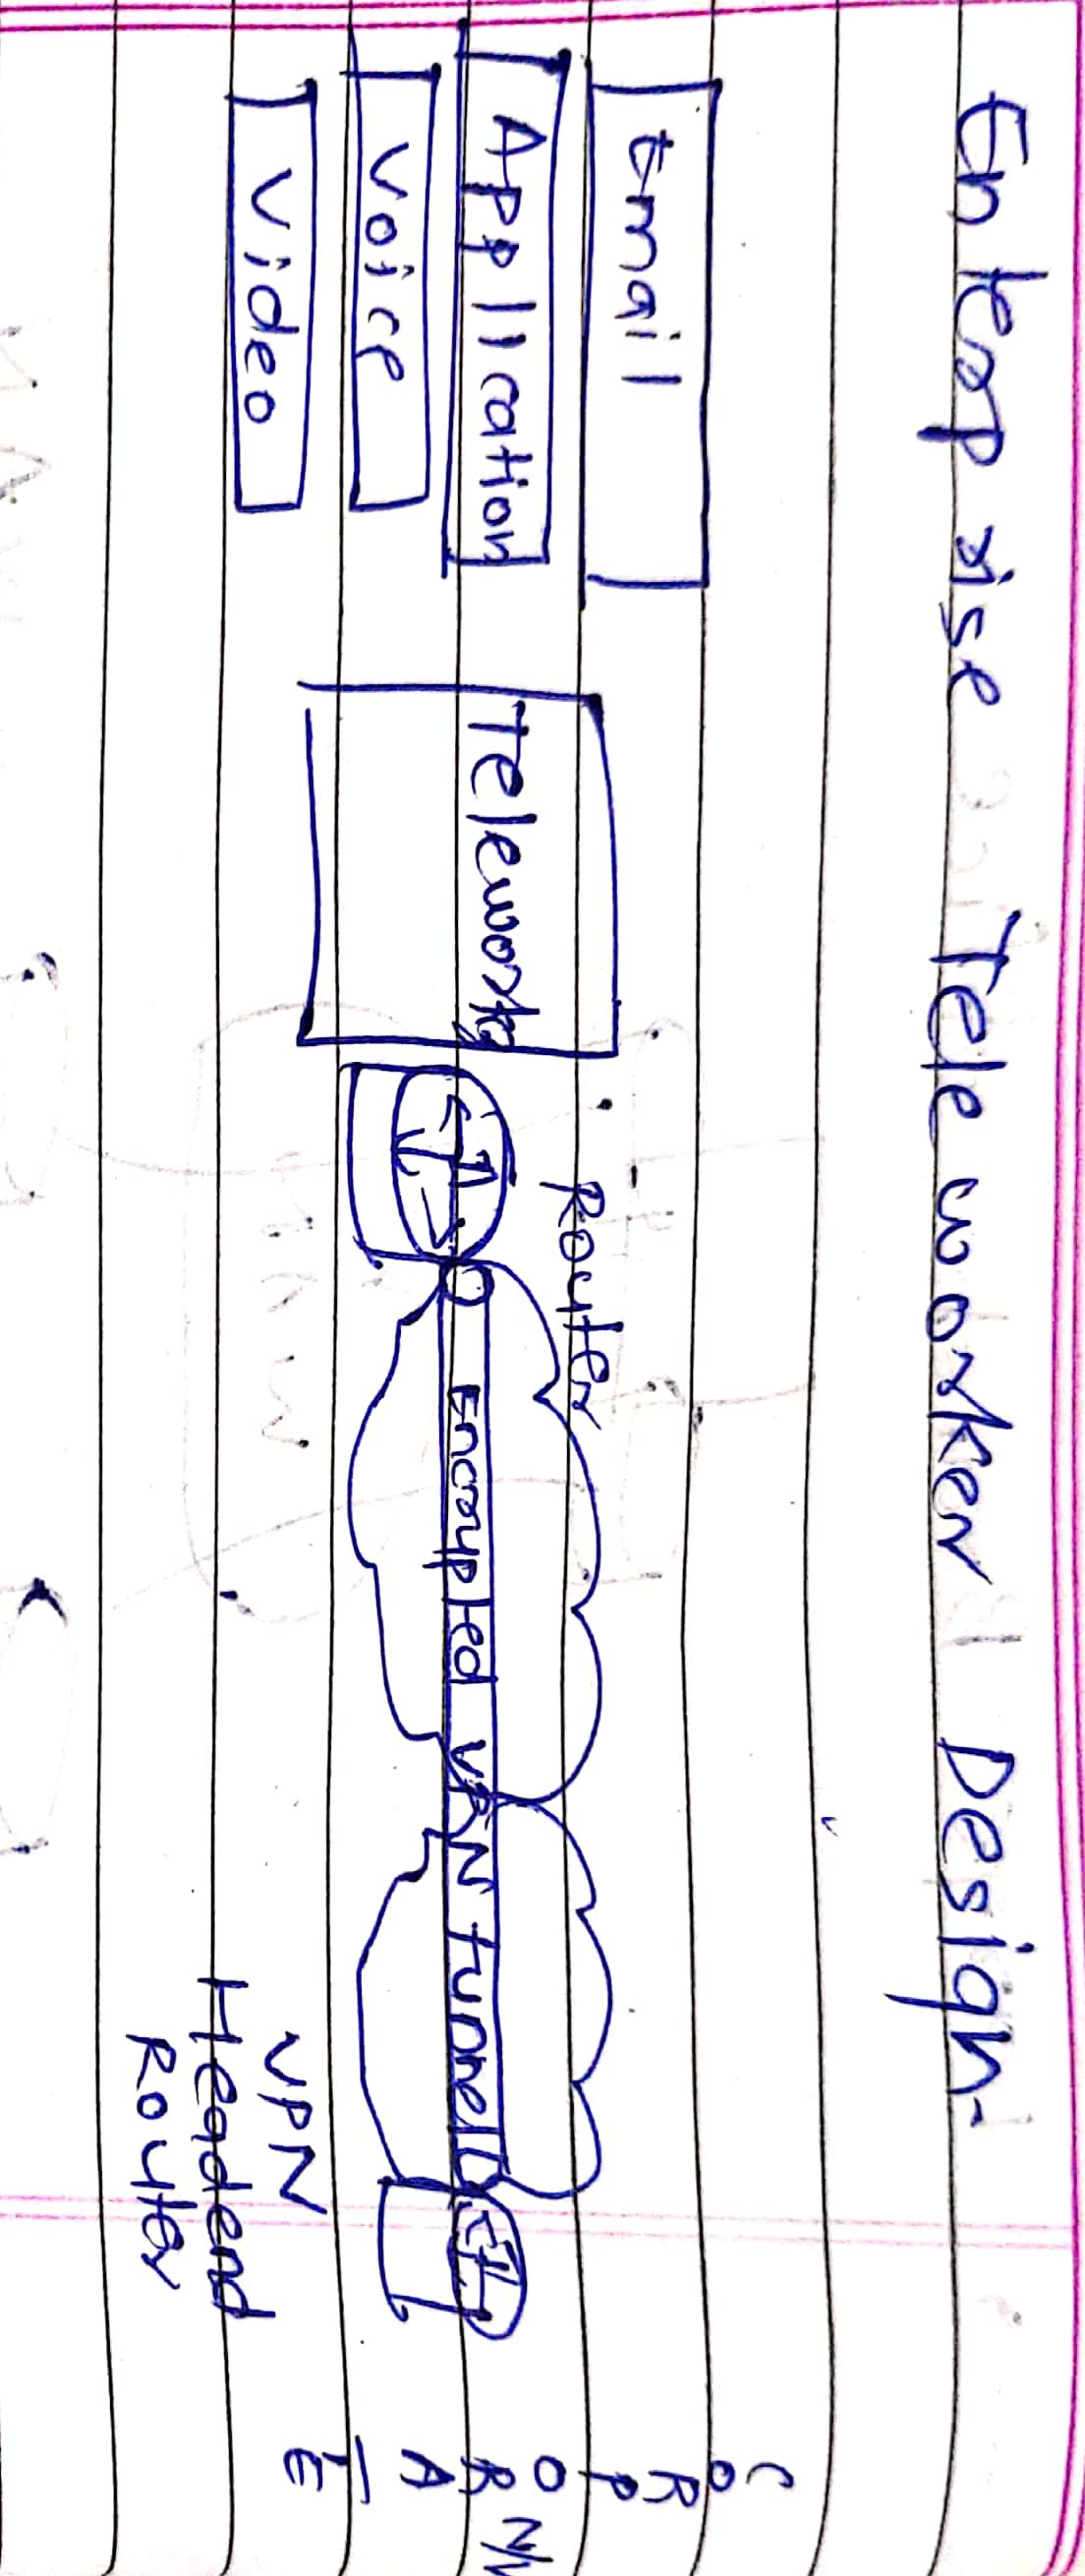 Enterprise Tele worker Design-
Email
Application
Voice
Video
Telework
Router
Encrypted VPN Tunnel
VPN
Headend
Router
CORPORATE
N/W